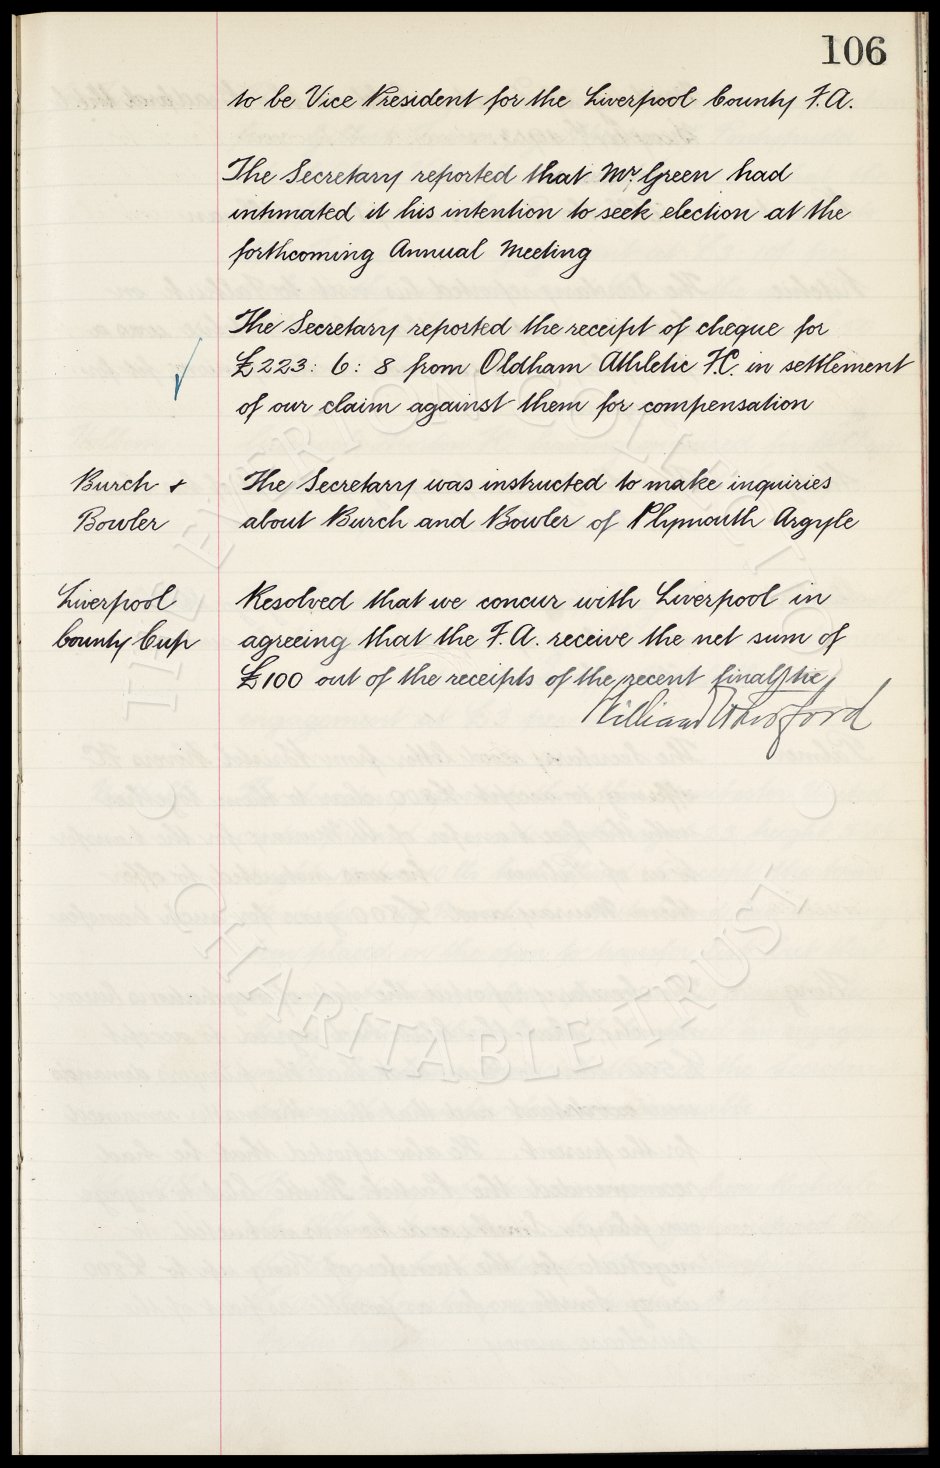 106
to be Vice President for the Liverpool County F.A.
The Secretary reported that Mr. Green had
intimated it his intention to seek election at the
forthcoming Annual Meeting
The Secretary reported the receipt of cheque for
£223 : 6 : 8 from Oldham Athletic F.C. in settlement
of our claim against them for compensation
Burch + The Secretary was instructed to make inquiries
Bowler about Burch and Bowler of Plymouth Argyle
Liverpool Resolved that we concur with Liverpool in
County Cup agreeing that the F.A. receive the net sum of
£100 out of the receipts of the recent final tie
William
THE EVERTON COLLECTION
CHARITABLE TRUST